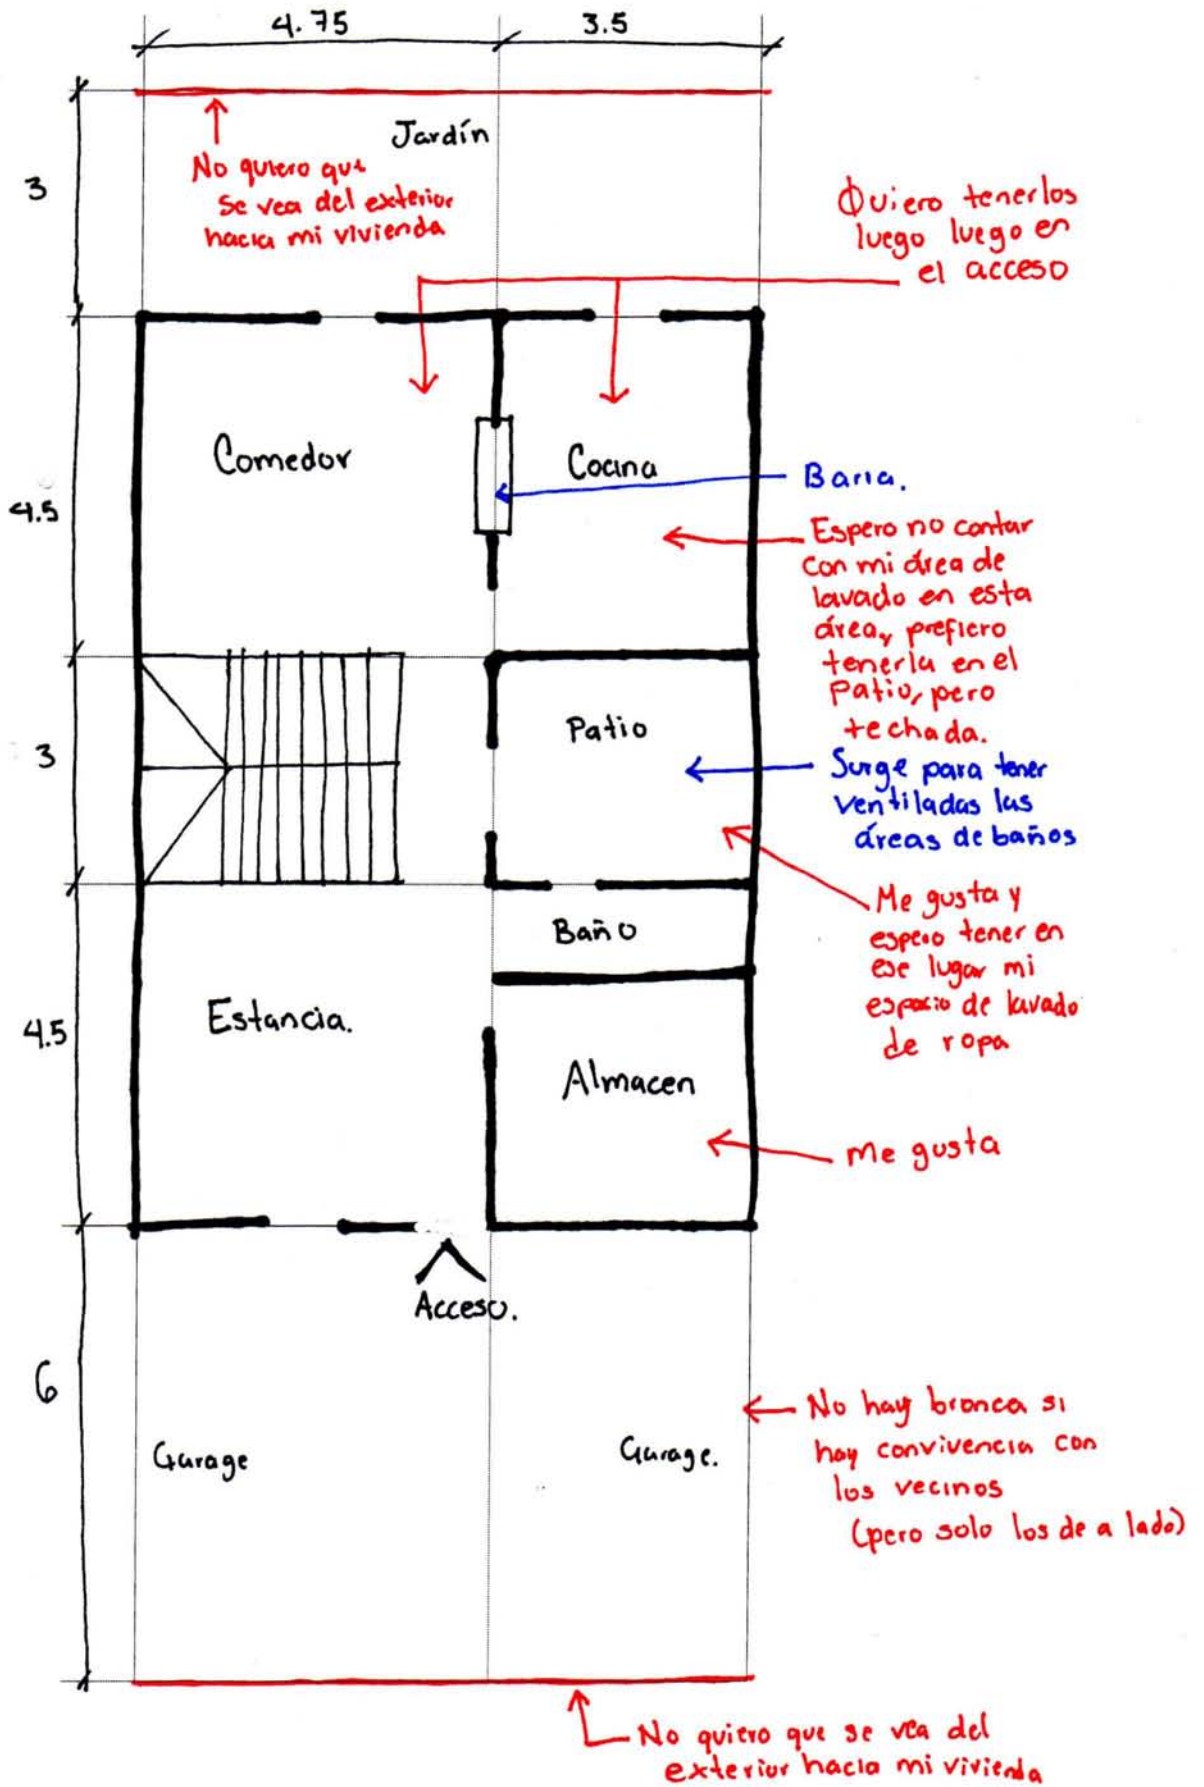 4.75
3.5
Jardín
No quiero que
se vea del exterior
hacia mi vivienda
3
Quiero tenerlos
luego luego en
el acceso
Comedor
Cocina
Barra.
4.5
Espero no contar
con mi área de
lavado en esta
área, prefiero
tenerla en el
Patio, pero
techada.
Patio
3
Surge para tener
ventiladas las
áreas de baños
Me gusta y
espero tener en
ese lugar mi
espacio de lavado
de ropa
Baño
Estancia.
4.5
Almacen
me gusta
Acceso.
6
No hay bronca si
hay convivencia con
los vecinos
(pero solo los de a lado)
Garage
Garage.
No quiero que se vea del
exterior hacia mi vivienda